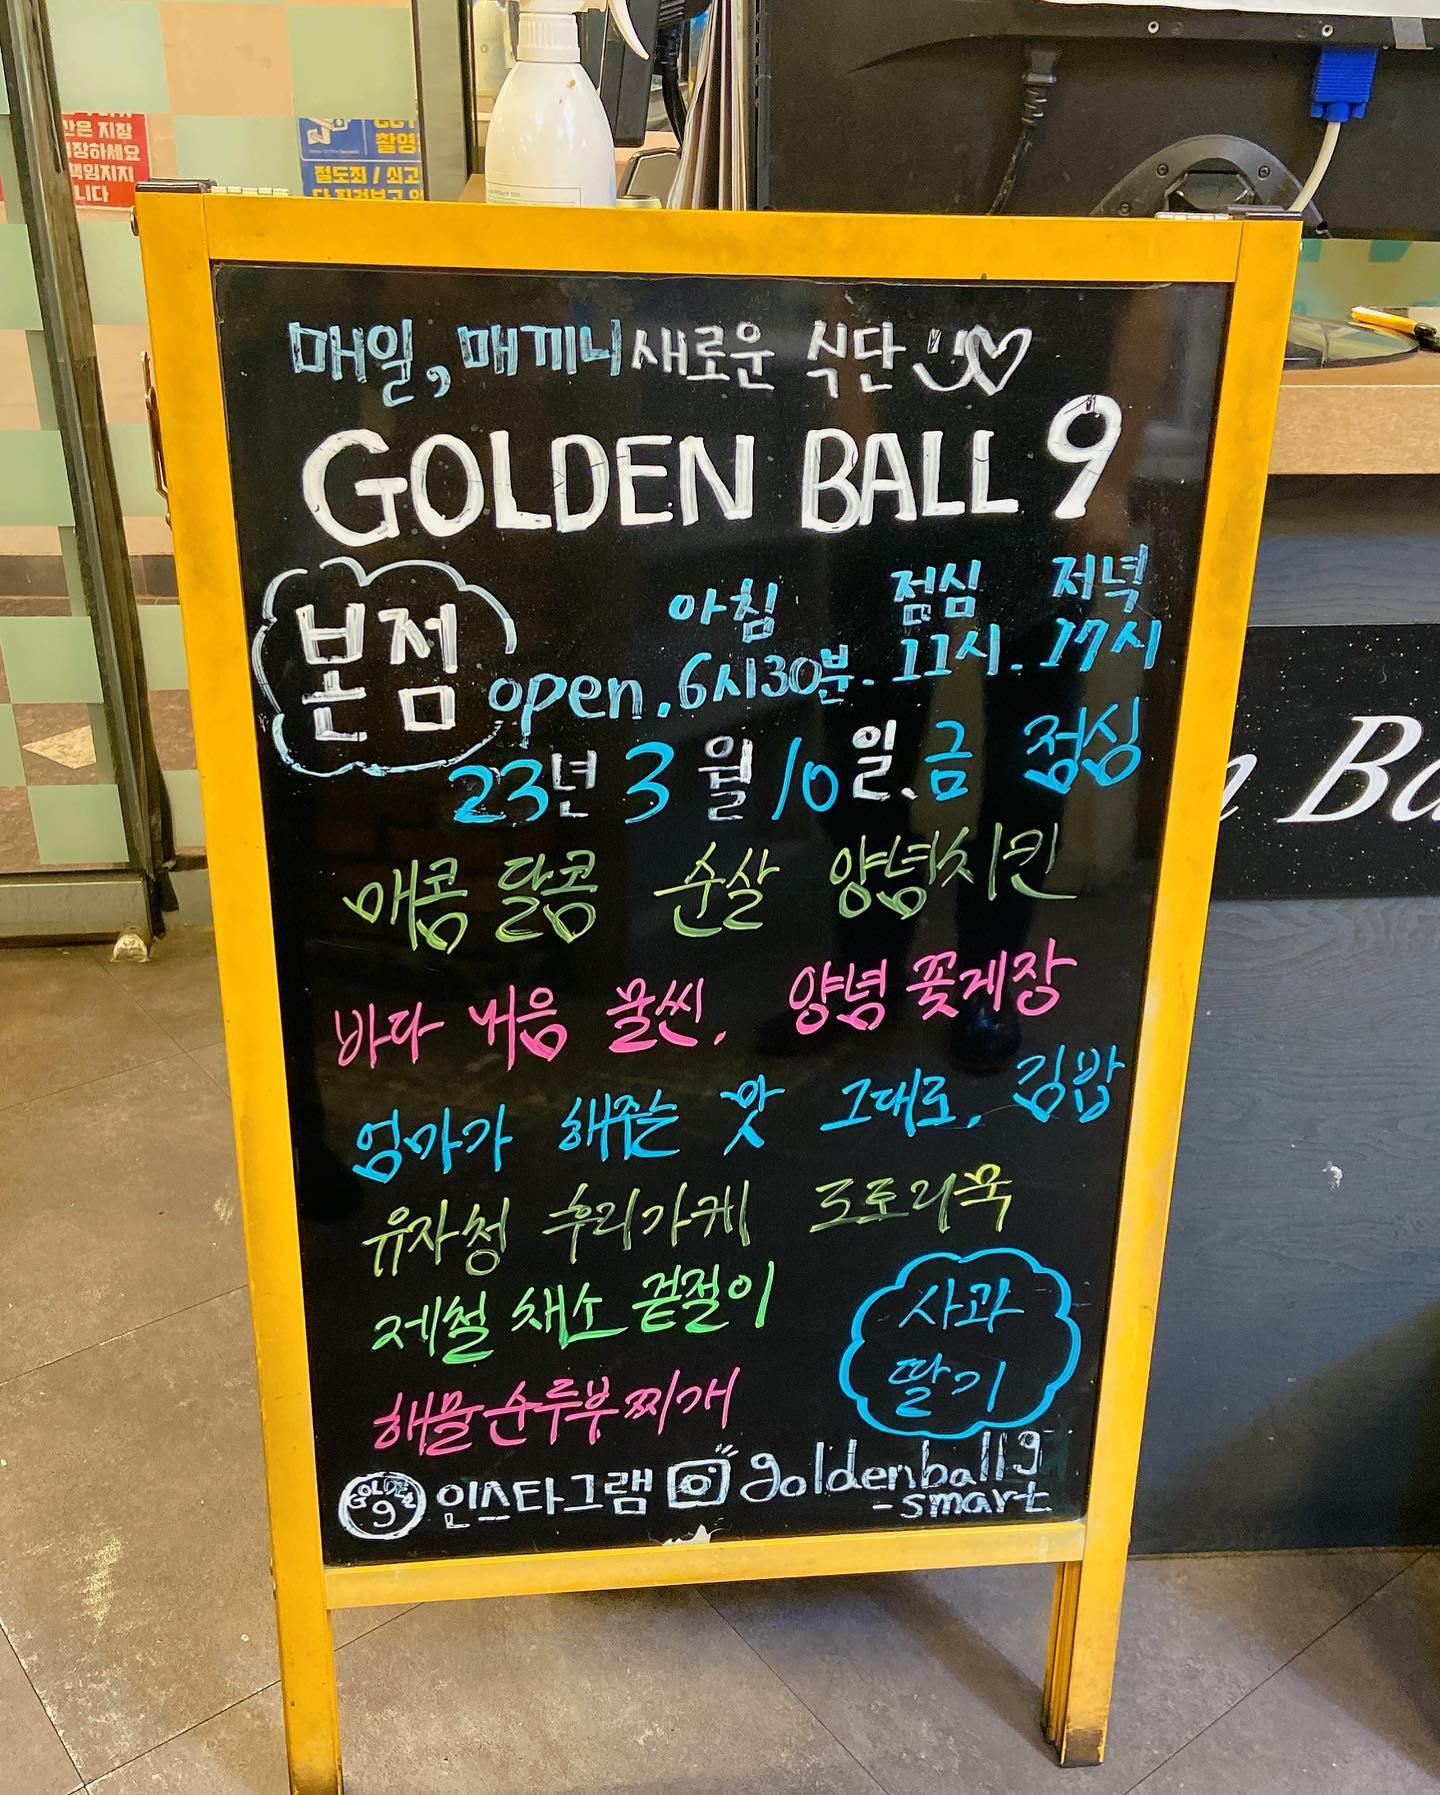 간은 지참
책임지지
니다
촬영
절도죄 / 쇠고
매일, 매끼니 새로운 식단
GOLDEN BALL 9
본점
아침 점심 저녁
open. 6시30분. 11시. 17시
23년 3월 10일. 금 점심
매콤 달콤 순살 양념치킨
바다 내음 물씬. 양념 꽃게장
엄마가 해주는 맛 그대로. 김밥
유자청 후리가케 도토리묵
제철 채소 겉절이
사과
딸기
해물순두부찌개
GOLDEN 9 인스타그램 goldenball9
-smart
Ba